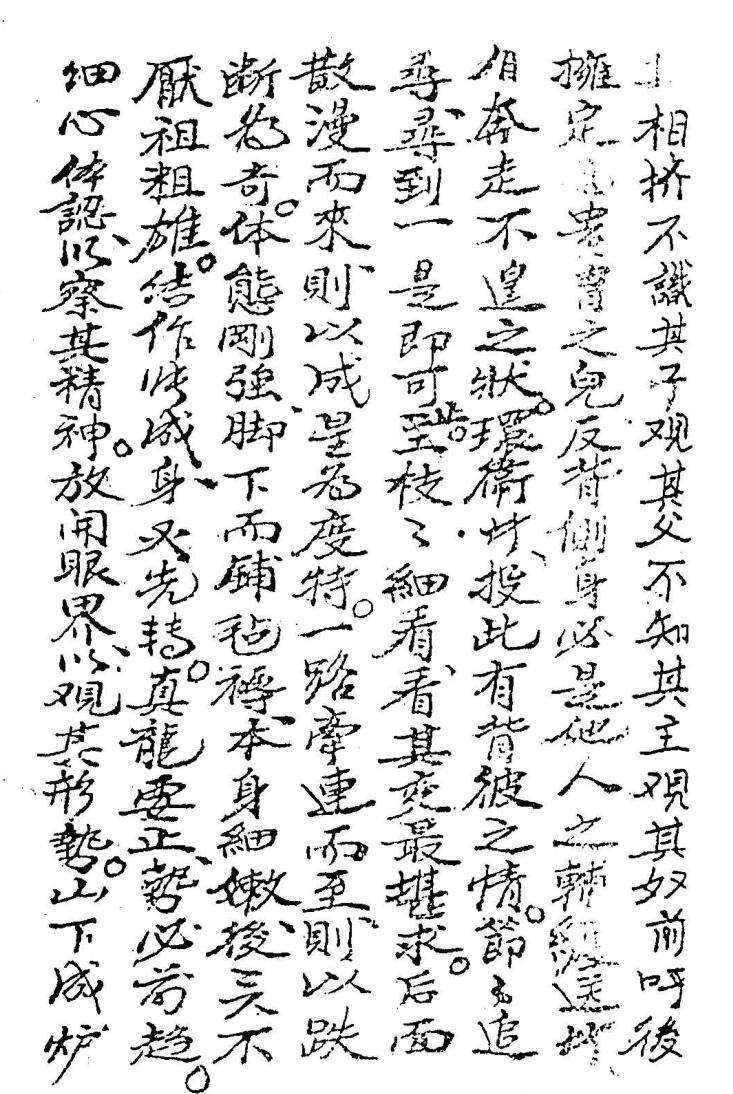 相挤不識其子观其父不知其主观其奴前呼後
擁定是貴督之皃反背側身必是他人之輔纒送
奔走不遑之狀。環衛皆投此有背彼之情。節々追
尋、尋到一是即可止。至枝々細看、看其変最堪求。后面
散漫而來則以成星為度特。一路牽連而至則以跌
断為奇。体態剛強、脚下而鋪毡褥、本身細嫩、後天不
厭祖粗雄。結作皆成身、又先轉。真龍要正、勢必前趋。
細心体認、以察其精神。放開眼界、以观其形勢。山下成炉